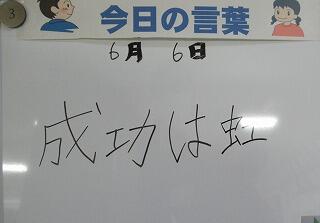 3
今日の言葉
6月 6日
成功は虹